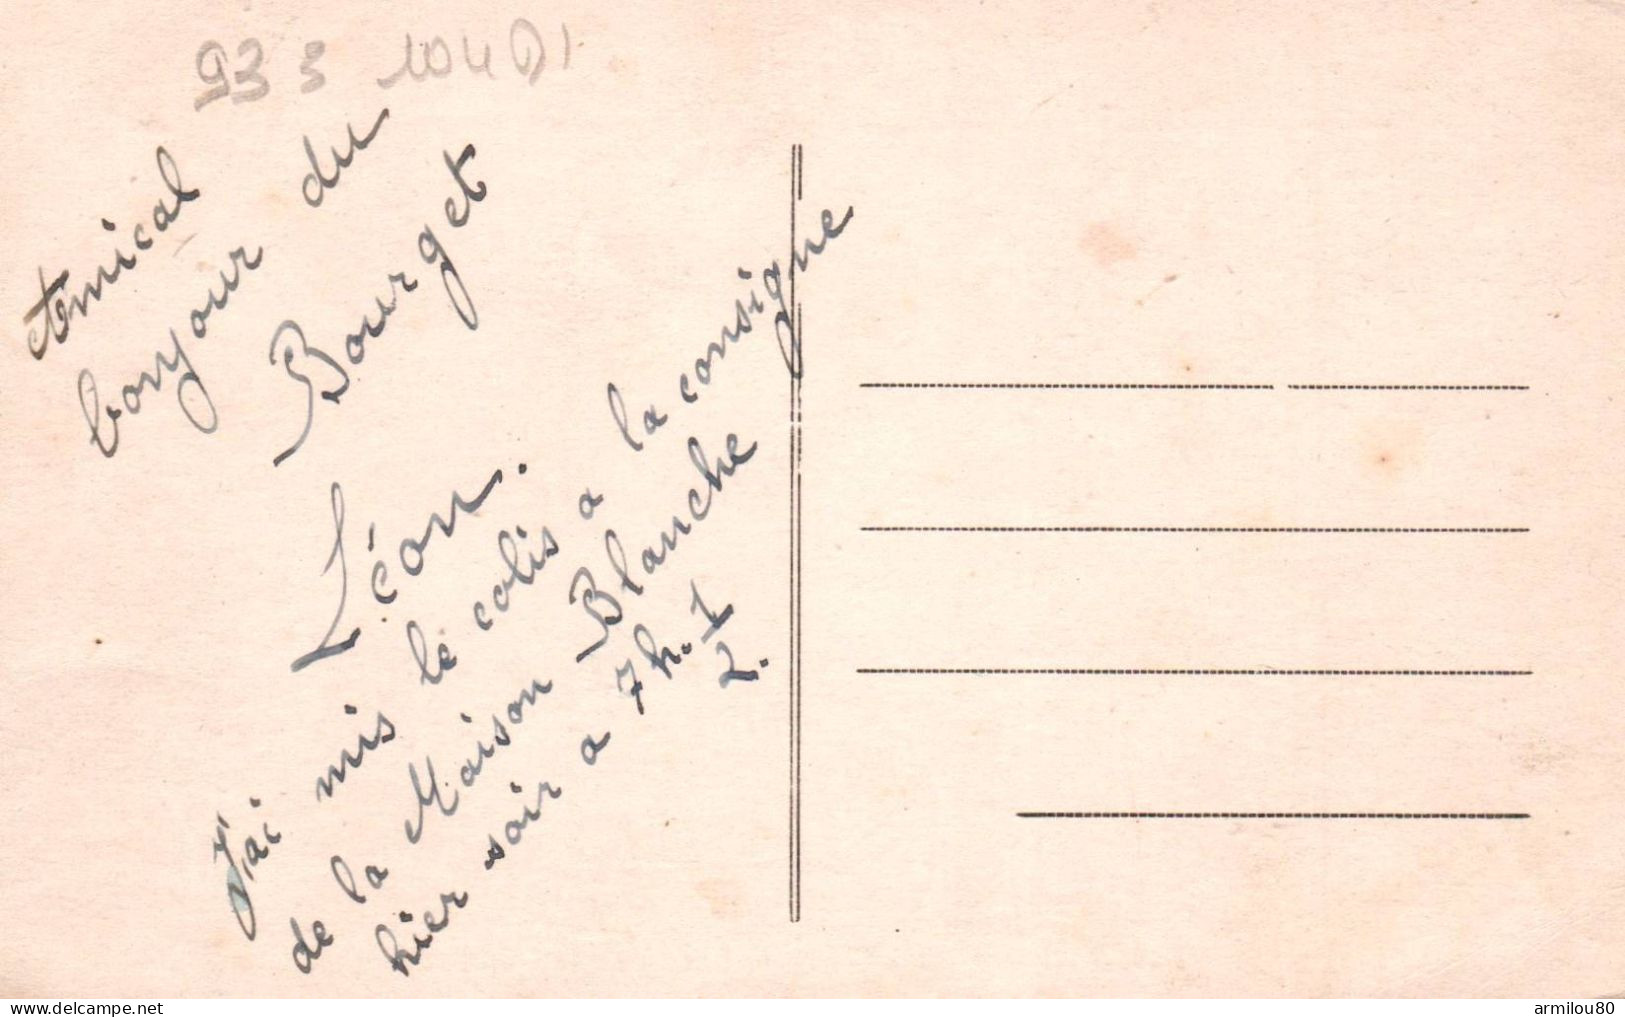 93 3
Amical
bonjour du
Bourget
Léon.
J'ai mis le colis a la consigne
de la Maison Blanche
hier soir a 7h. 1/2.
www.delcampe.net
armilou80